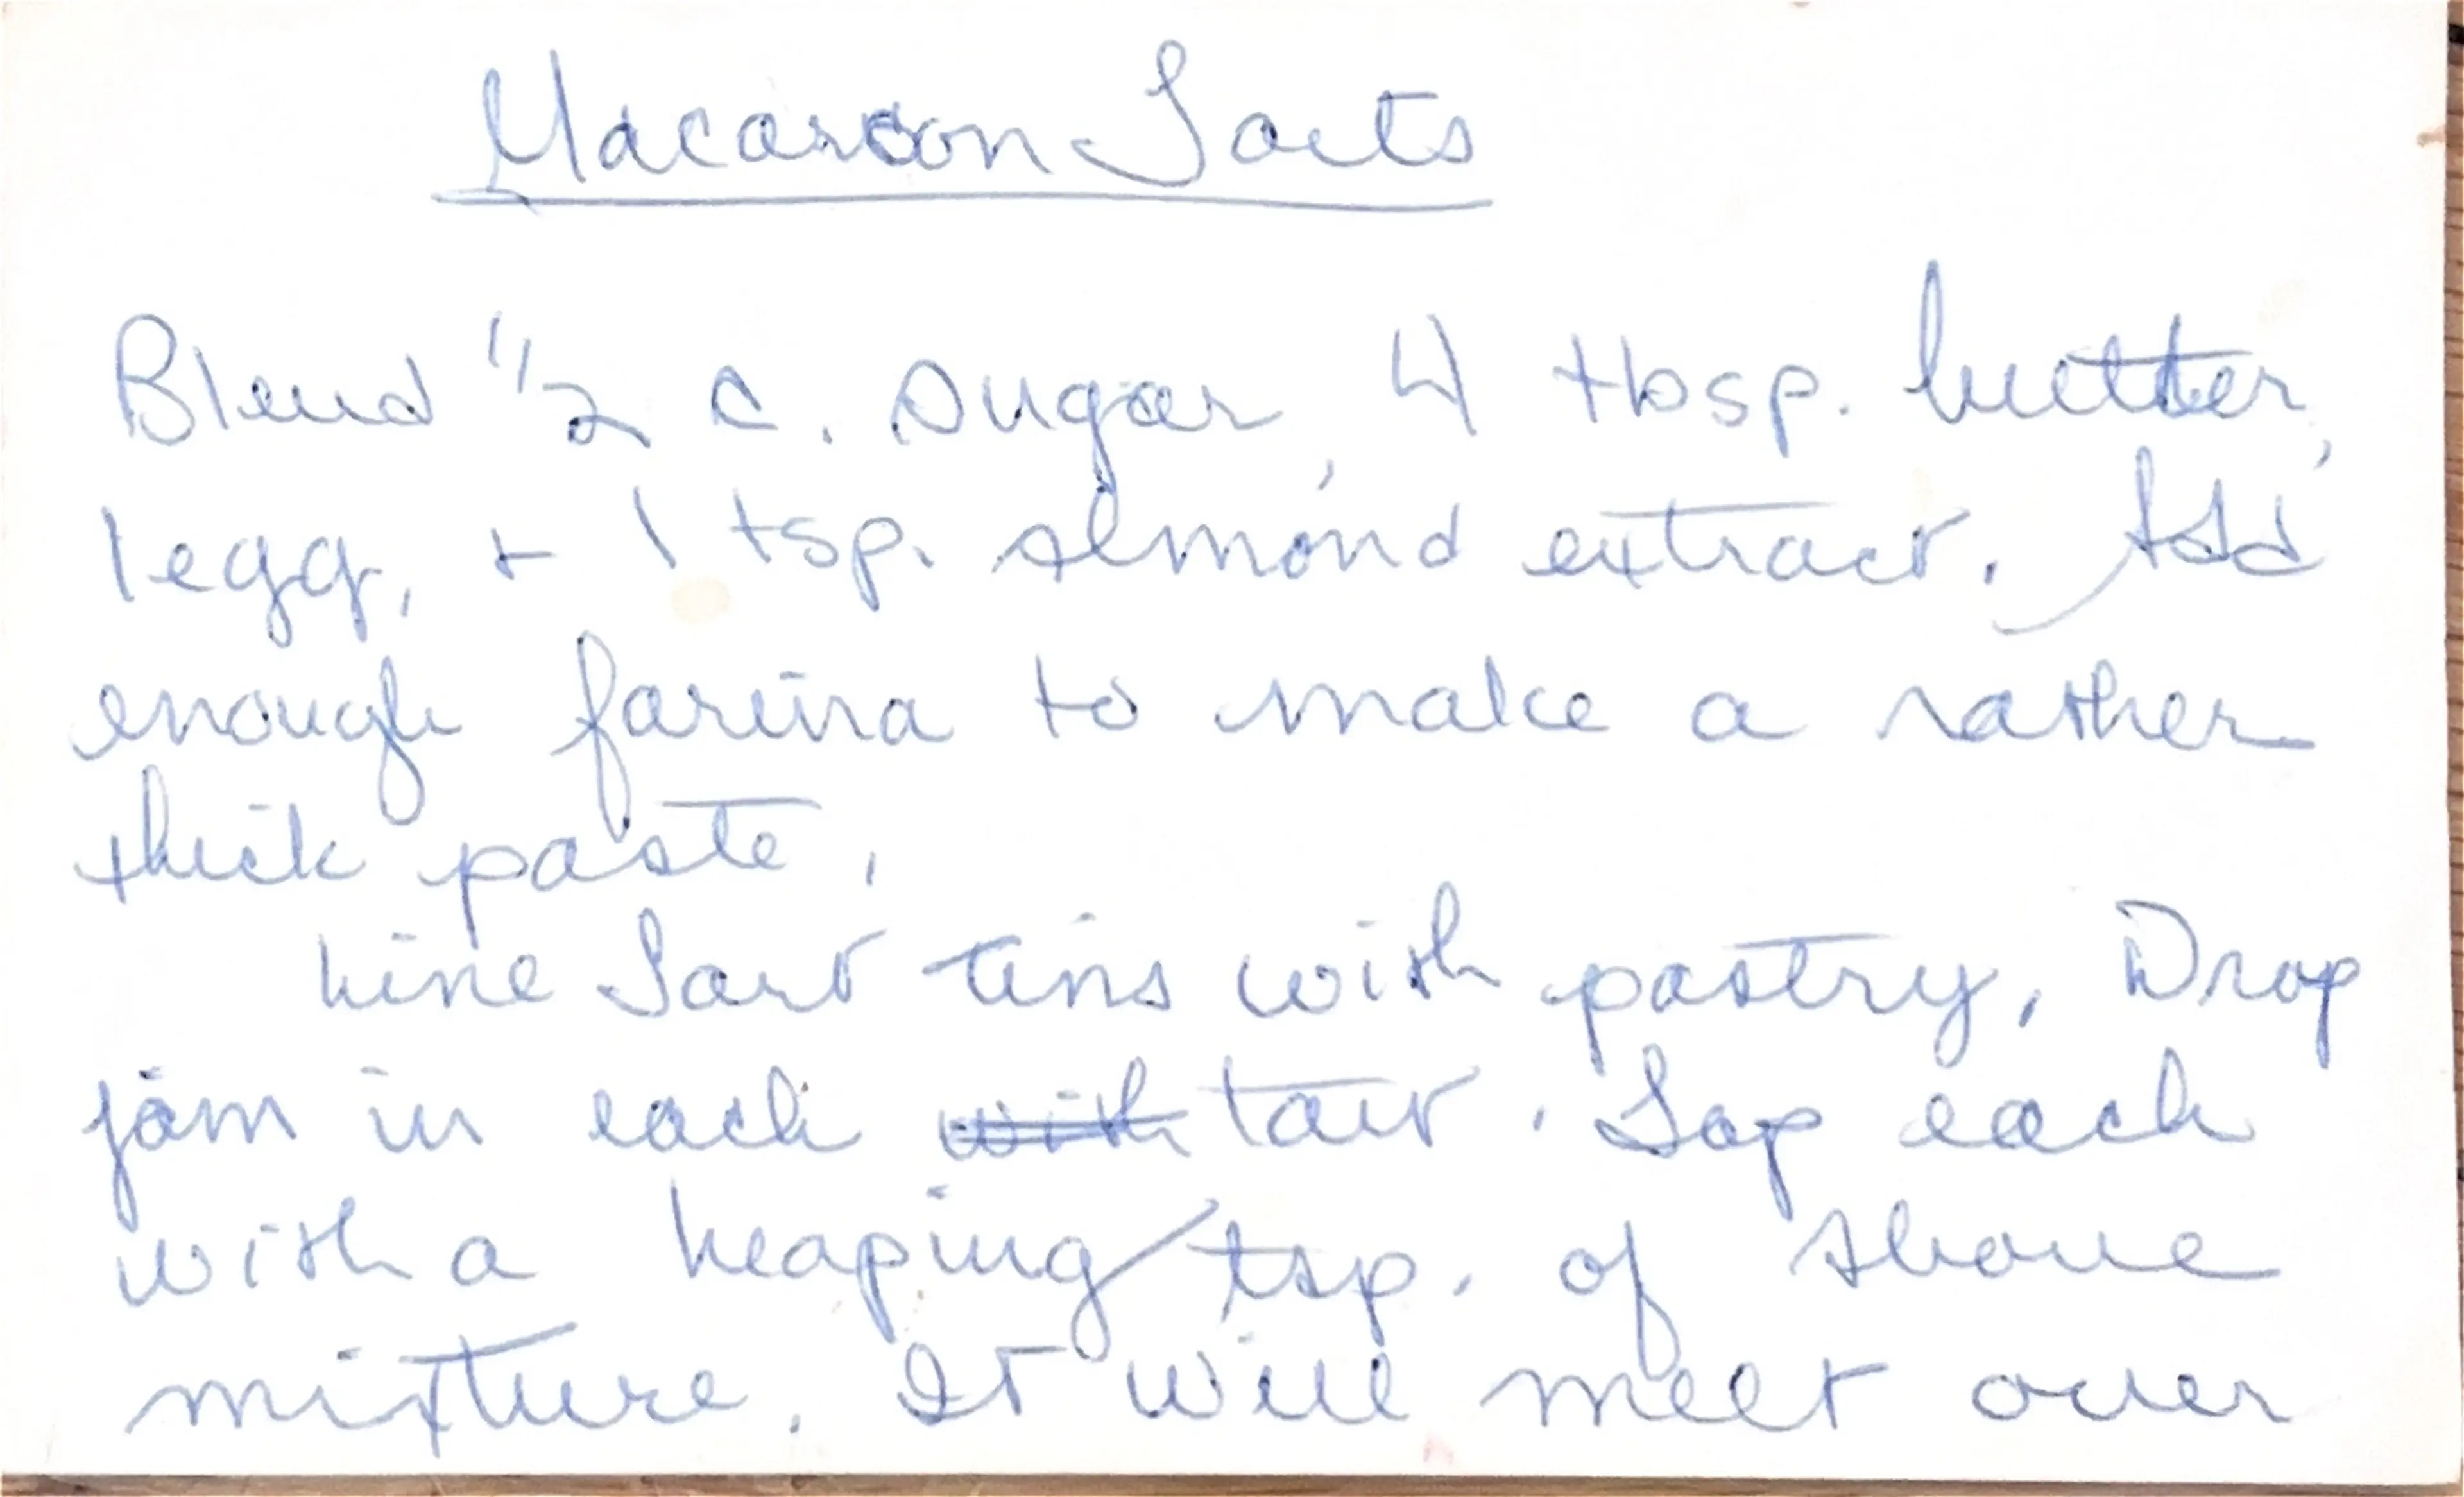 Macaroon Tarts
Blend 1/2 c. sugar, 4 tbsp. butter,
1 egg, + 1 tsp. almond extract. Add
enough farina to make a rather
thick paste.
Line Tart tins with pastry. Drop
jam in each with tart. Top each
with a heaping tsp. of above
mixture. It will melt over